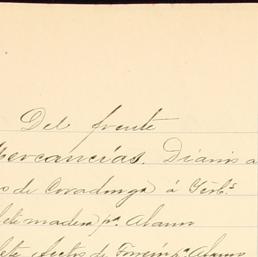 Del frente
Mercancías. Diarios a
s de Covadonga á
flete madera pa. Alamo
flete efectos de pa. Alamo